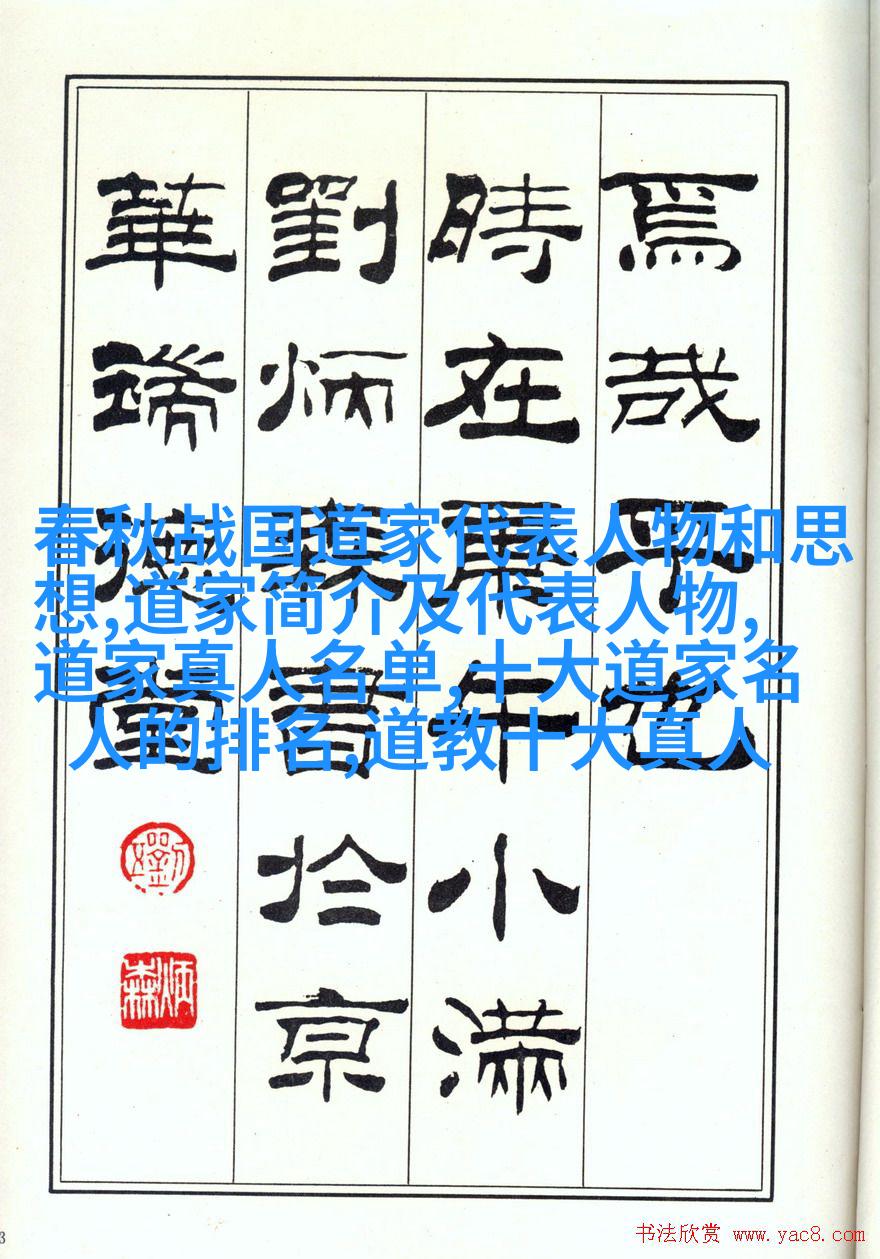 焉哉乎也
時在庚午小滿
劉炳森書於京
華
劉
炳森
春秋战国道家代表人物和思
想,道家简介及代表人物,
道家真人名单,十大道家名
人的排名,道教十大真人
书法欣赏 www.yac8.com
3